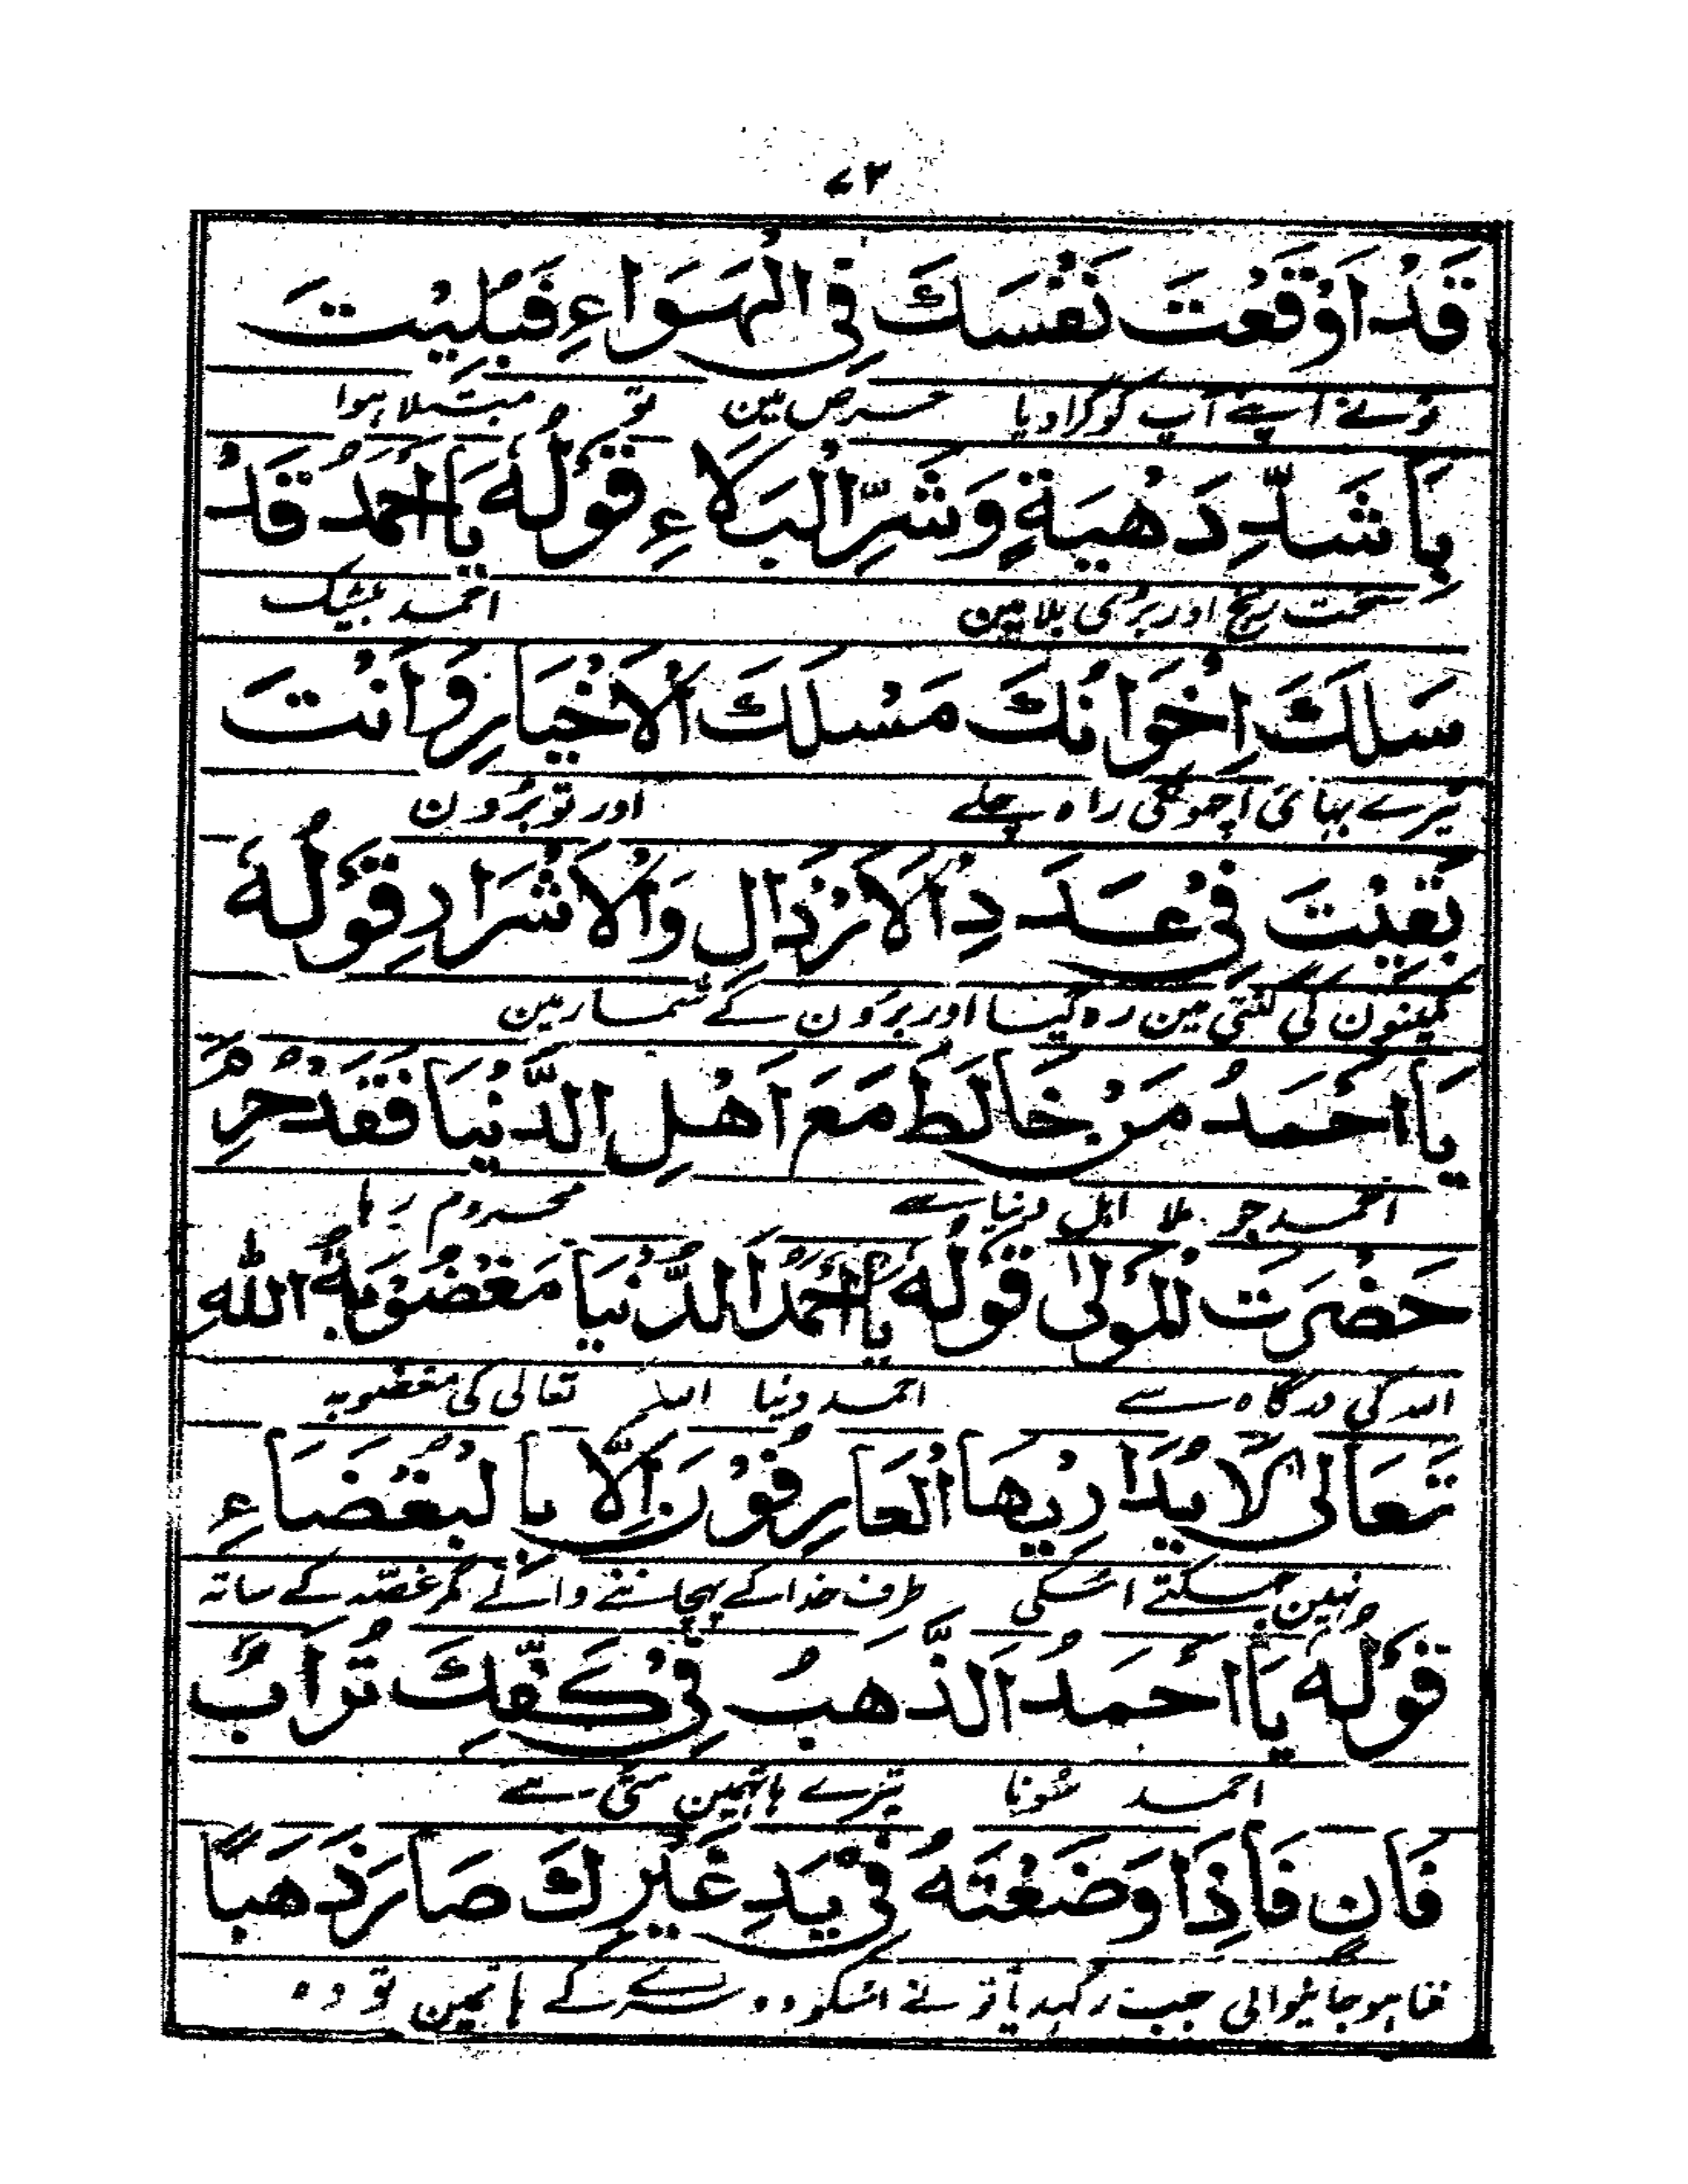 ۷۳
قَدْ اَوْقَعْتَ نَفْسَكَ فِی الْهَوَاءِ فَبُلِيْتَ
تونے اپنے آپ کو گرا دیا حرص مین تو مبتلا ہوا
بِاَشَدِّ دَهْيَةٍ وَشَرِّ الْبَلَاءِ قَوْلُهٗ يَا اَحْمَدُ قَدْ
سخت رنج اور بری بلا مین احمد بیشک
سَلَكَ اِخْوَانُكَ مَسْلَكَ الْاَخْيَارِ وَاَنْتَ
تیرے بہائی اچہونکی راہ چلے اور تو برون
بَقِيْتَ فِیْ عَدَدِ الْاَرْذَالِ وَالْاَشْرَارِ قَوْلُهٗ
کمینون کی گنتی مین رہ گیا اور برون کے شمار مین
يَا اَحْمَدُ مَنْ خَالَطَ مَعَ اَهْلِ الدُّنْيَا فَقَدْ حُرِمَ
احمد جو ملا اہل دنیا سے محروم رہا
حَضْرَتَ الْمَوْلٰی قَوْلُهٗ يَا اَحْمَدُ اَلدُّنْيَا مَغْضُوْبَةُ اللهِ
اللہ کی درگاہ سے احمد دنیا اللہ تعالی کی مغضوبہ
تَعَالٰی لَا يُدَارِيْهَا الْعَارِفُوْنَ اِلَّا بِالْبُغْضَاءِ
نہین جہکتے اسکی طرف خدا کے پہچاننے والے مگر غصہ کے ساتہ
قَوْلُهٗ يَا اَحْمَدُ اَلذَّهَبُ فِیْ كَفِّكَ تُرَابٌ
احمد سونا تیرے ہاتہمین مٹی ہے
فَانٍ فَاِذَا وَضَعْتَهٗ فِیْ يَدِ غَيْرِكَ صَارَ ذَهَبًا
فنا ہو جانیوالی جب رکہدیا تونے اسکو دوسرے کے ہاتہمین تو وہ